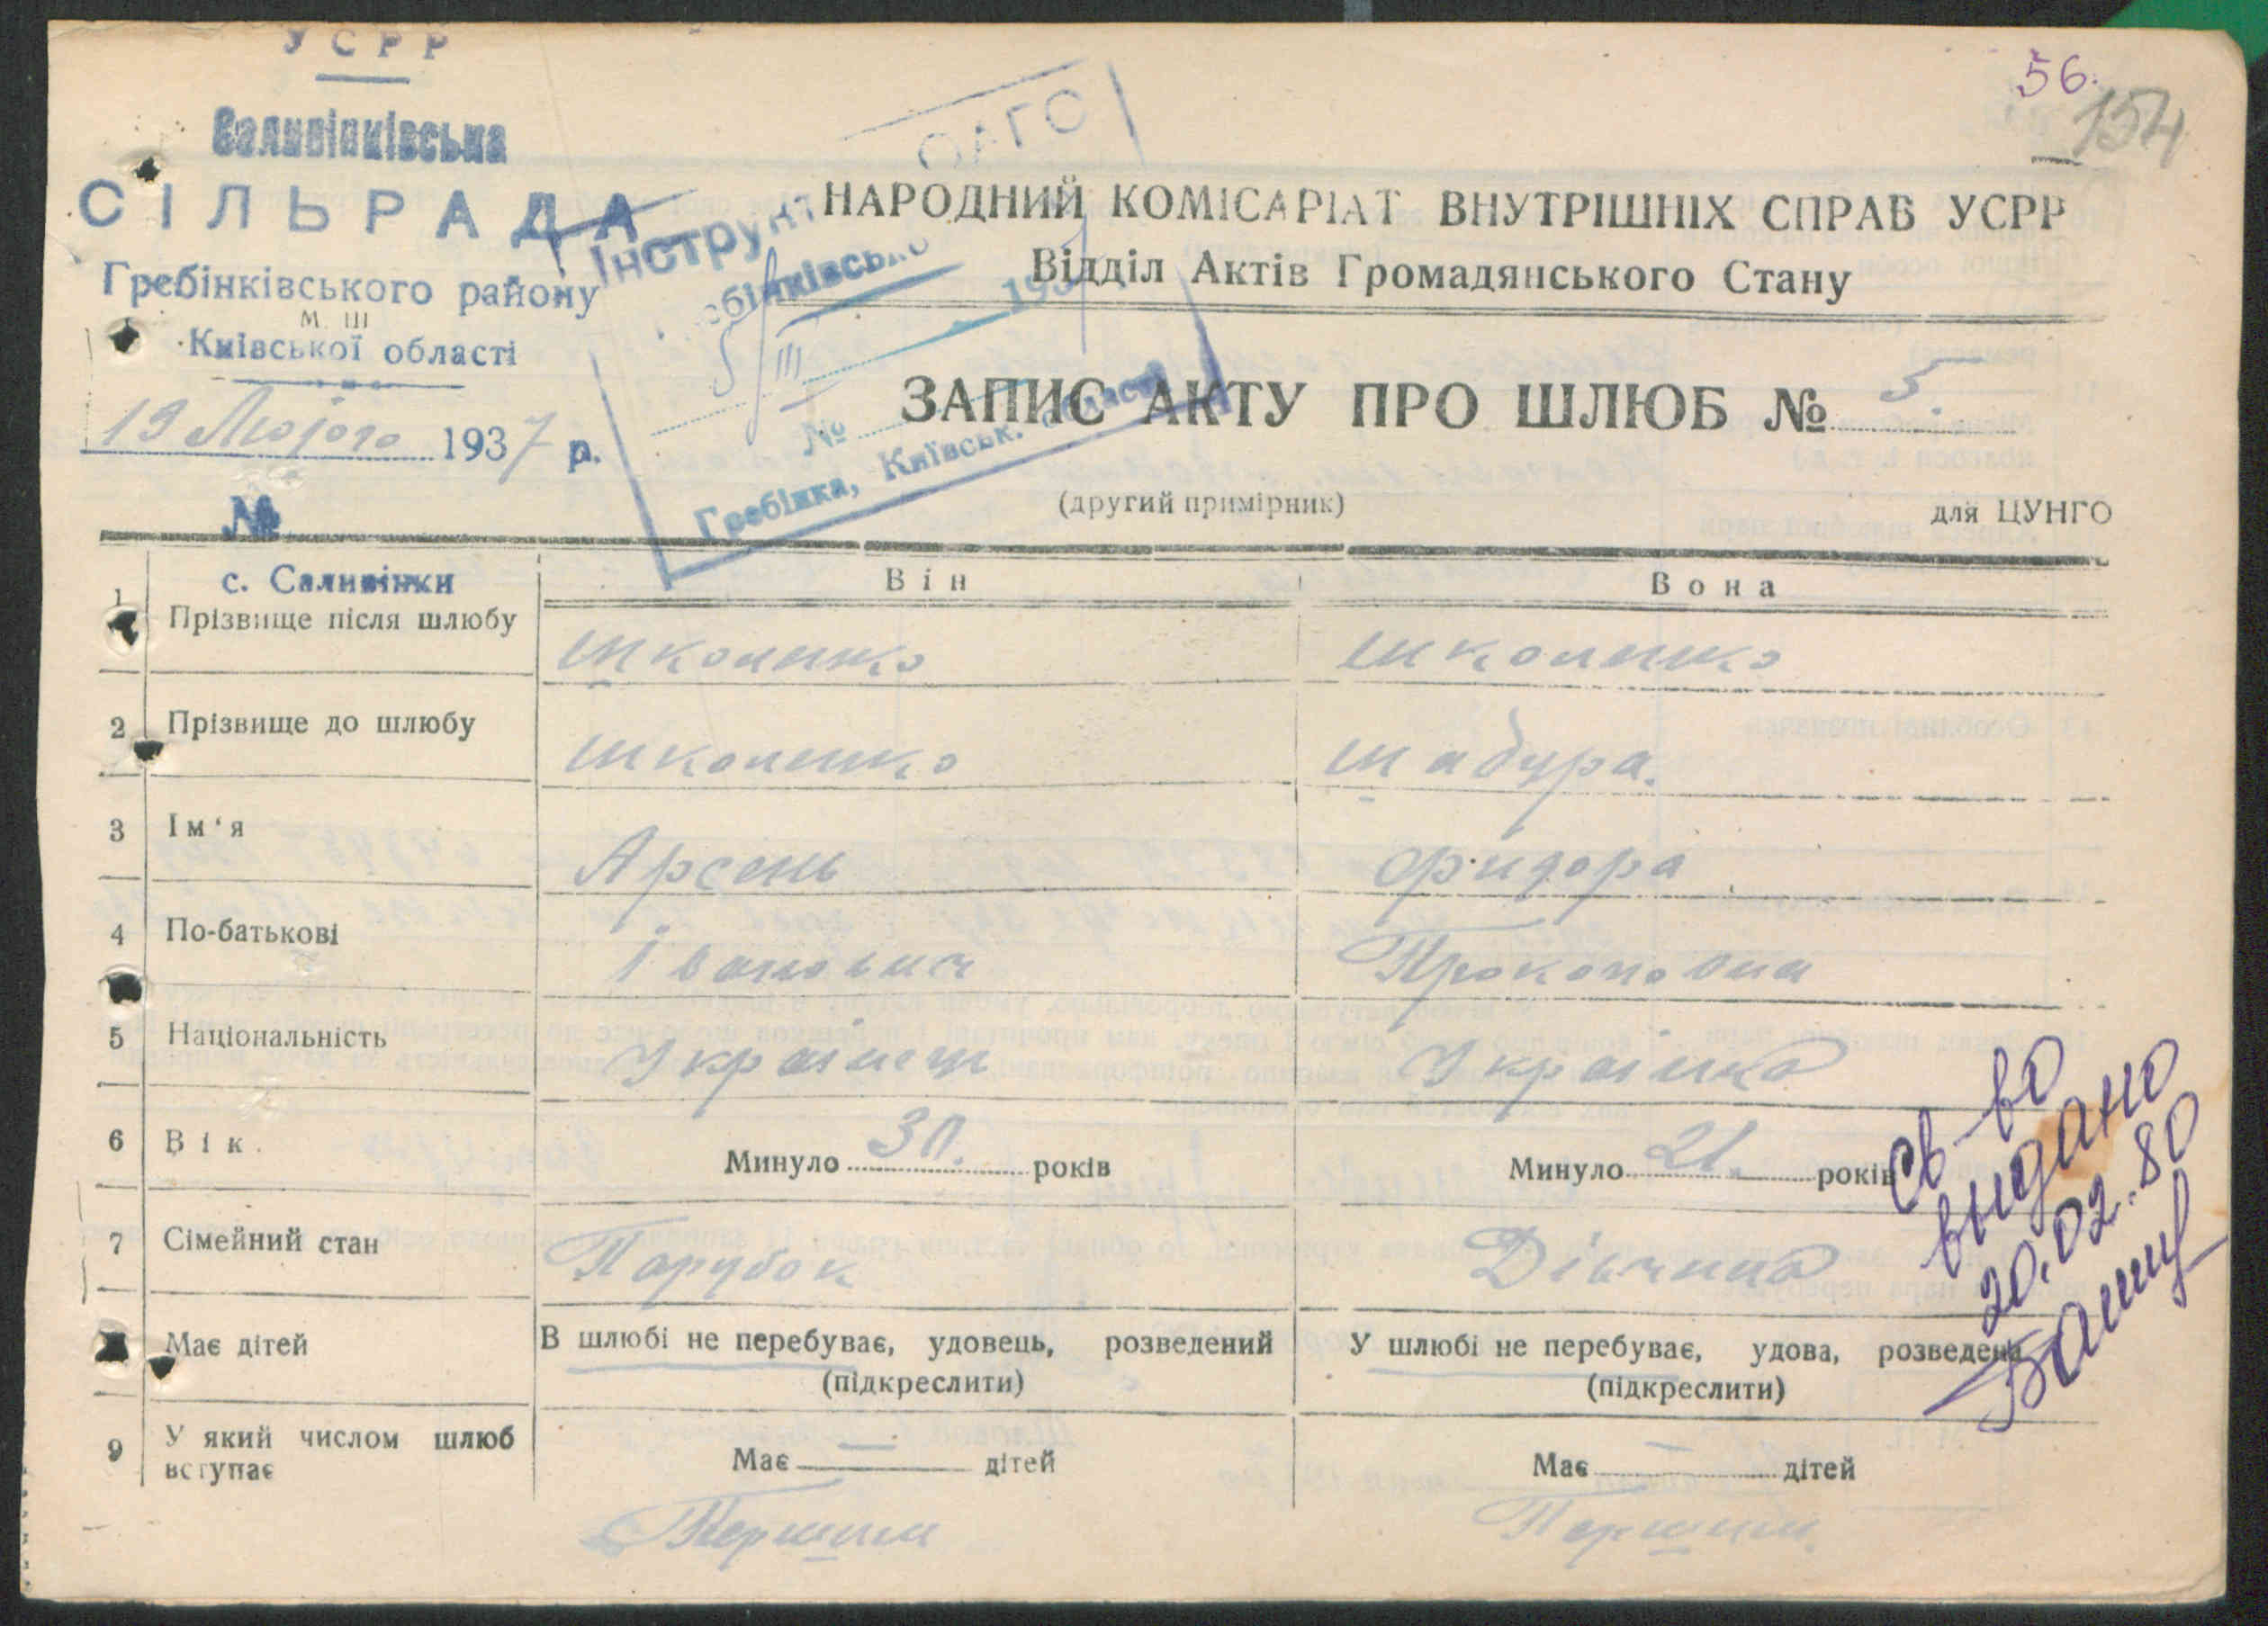 УСРР
56.
154
Саливінківська
СІЛЬРАДА
Гребінківського району
М. Ш
Київської області
19 Лютого 1937 р.
№
ОАГС
Інструкт
бінківсько
193
5/III
№
Гребінка, Київськ. області
НАРОДНИЙ КОМІСАРІАТ ВНУТРІШНІХ СПРАВ УСРР
Відділ Актів Громадянського Стану
ЗАПИС АКТУ ПРО ШЛЮБ № 5.
(другий примірник)
для ЦУНГО
с. Саливінки
Він
Вона
1 Прізвище після шлюбу
Школенко
Школенко
2 Прізвище до шлюбу
Школенко
Шабура.
3 Ім'я
Арсень
Фидора
4 По-батькові
Іванович
Прокоповна
5 Національність
Украінець
Украінка
6 Вік.
Минуло 30. років
Минуло 21. років
7 Сімейний стан
Парубок
Дівчина
Має дітей
В шлюбі не перебуває, удовець, розведений
(підкреслити)
У шлюбі не перебуває, удова, розведена
(підкреслити)
9 У який числом шлюб
вступає
Має — дітей
Має — дітей
Першим
Першим
св-во
выдано
20.02.80